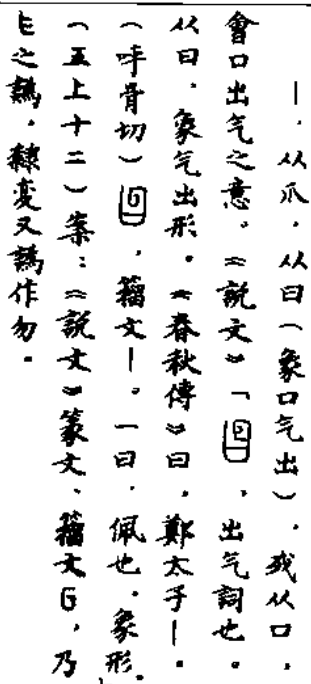 ｜，从爪，从曰（象口气出），或从口，
會口出气之意。《說文》「，出气詞也。
从曰，象气出形。《春秋傳》曰，鄭太子｜。
（呼骨切），籀文｜。一曰，佩也，象形。
（五上十二）案：《說文》篆文、籀文，乃
之譌，隸变又譌作勿。